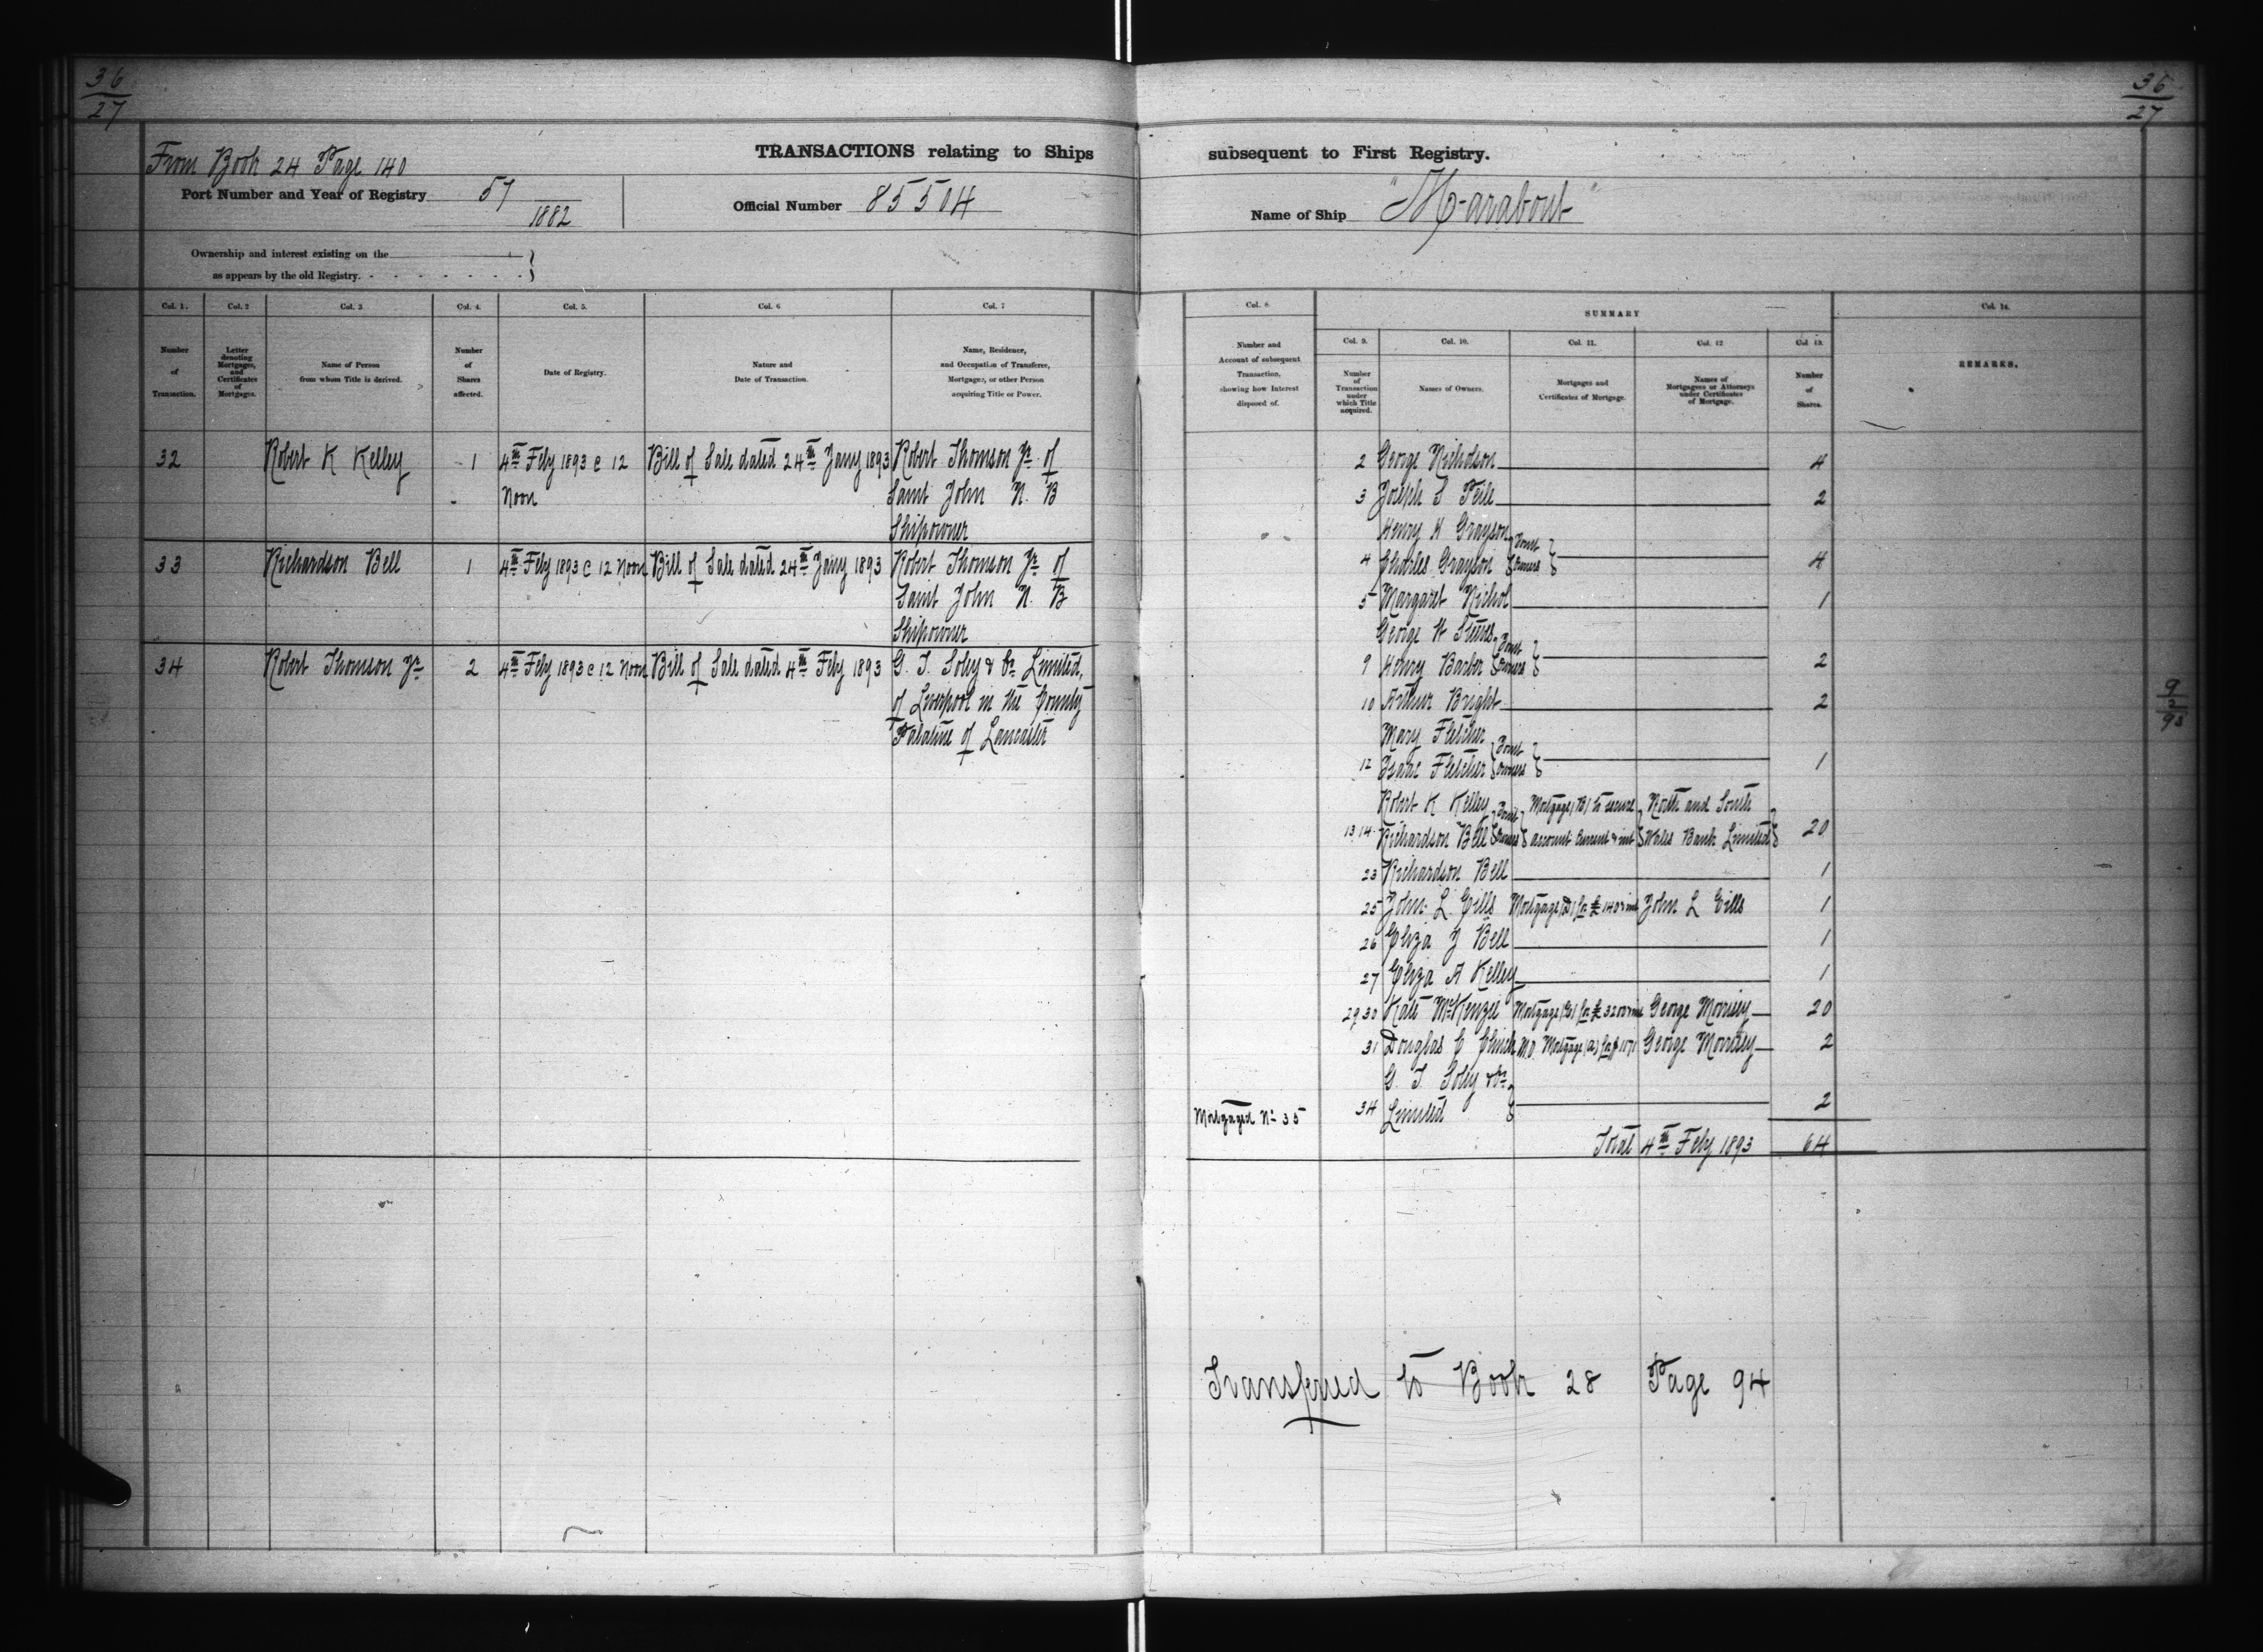 36
27
36
27
From Book 24 Page 140
TRANSACTIONS relating to Ships
subsequent to First Registry.
Port Number and Year of Registry 57
1882
Official Number 85504
Name of Ship "Marabout"
Ownership and interest existing on the
as appears by the old Registry.
Col. 1. Col. 2 Col. 3 Col. 4. Col. 5. Col. 6 Col. 7
Number of Transaction.
Letter denoting Mortgages, and Certificates of Mortgages.
Name of Person from whom Title is derived.
Number of Shares affected.
Date of Registry.
Nature and Date of Transaction.
Name, Residence, and Occupation of Transferee, Mortgagee, or other Person acquiring Title or Power.
32 Robert K Kelley 1 4th Feby 1893 @ 12 Bill of Sale dated 24th Jany 1893 Robert Thomson Jr. of
Noon Saint John N. B
Shipowner
33 Richardson Bell 1 4th Feby 1893 @ 12 Noon Bill of Sale dated 24th Jany 1893 Robert Thomson Jr. of
Saint John N. B
Shipowner
34 Robert Thomson Jr. 2 4th Feby 1893 @ 12 Noon Bill of Sale dated 4th Feby 1893 G. T. Soley & Co. Limited,
of Liverpool in the County
Palatine of Lancaster
Col. 8
SUMMARY
Col. 14.
Col. 9. Col. 10. Col. 11. Col. 12 Col. 13.
Number and Account of subsequent Transaction, showing how Interest disposed of.
Number of Transaction under which Title acquired.
Names of Owners.
Mortgages and Certificates of Mortgage.
Names of Mortgagees or Attorneys under Certificates of Mortgage.
Number of Shares.
REMARKS.
2 George Nicholson 4
3 Joseph S Teile 2
Henry H Grayson
4 Charles Grayson Joint Owners 4
5 Margaret Nichol 1
George W Steeves
9 Henry Barber Joint Owners 2
10 Arthur Bright 2
Mary Fletcher
12 Isaac Fletcher Joint Owners 1
Robert K Kelley Mortgage (B) to secure North and South
13 14 Richardson Bell Joint Owners account current & int Wales Bank Limited 20
23 Richardson Bell 1
25 John L. Eills Mortgage (D) for £140 & int John L Eills 1
26 Eliza J Bell 1
27 Eliza A Kelley 1
29 30 Kate McKenzie Mortgage for £3200 & int George Morrisey 20
31 Douglas C Clinch Mortgage (a) for 1071 George Morrisey 2
G. T. Soley & Co.
Mortgaged No. 35 34 Limited 2
Total 4th Feby 1893 64
9
2
93
Transferred to Book 28 Page 94